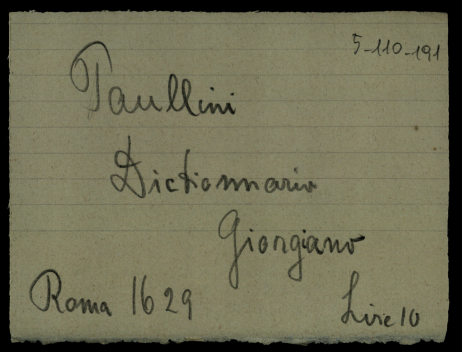 5-110-191
Paullini
Dictionnario
Giorgiano
Roma 1629
Lire 10